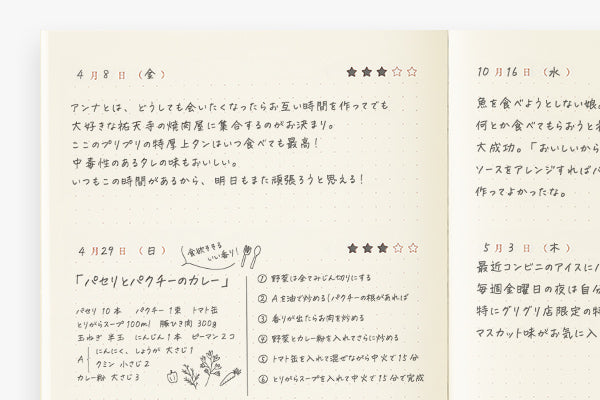 4月8日（金）
★★★☆☆
アンナとは、どうしても会いたくなったらお互い時間を作ってでも
大好きな祐天寺の焼肉屋に集合するのがお決まり。
ここのプリプリの特厚上タンはいつ食べても最高！
中毒性のあるタレの味もおいしい。
いつもこの時間があるから、明日もまた頑張ろうと思える！
4月29日（日）
食欲そそる
いい香り！
★★★☆☆
「パセリとパクチーのカレー」
パセリ 10本 パクチー 1束 トマト缶
とりがらスープ100ml 豚ひき肉 300g
玉ねぎ 半玉 にんにん 1本 ピーマン 2コ
A
にんにく、しょうが 大さじ1
クミン 小さじ2
カレー粉 大さじ3
① 野菜は全てみじん切りにする
② Aを油で炒める（パクチーの根があれば
③ 香りが出たらお肉を炒める
④ 野菜とカレー粉を入れてさらに炒める
⑤ トマト缶を入れて混ぜながら中火で15分
⑥ とりがらスープを入れて中火で15分で完成
10月16日（水）
魚を食べようとしない娘。
何とか食べてもらおうと
大成功。「おいしいから
ソースをアレンジすれば
作ってよかったな。
5月3日（木）
最近コンビニのアイスに
毎週金曜日の夜は自分
特にグリグリ店限定の特
マスカット味がお気に入